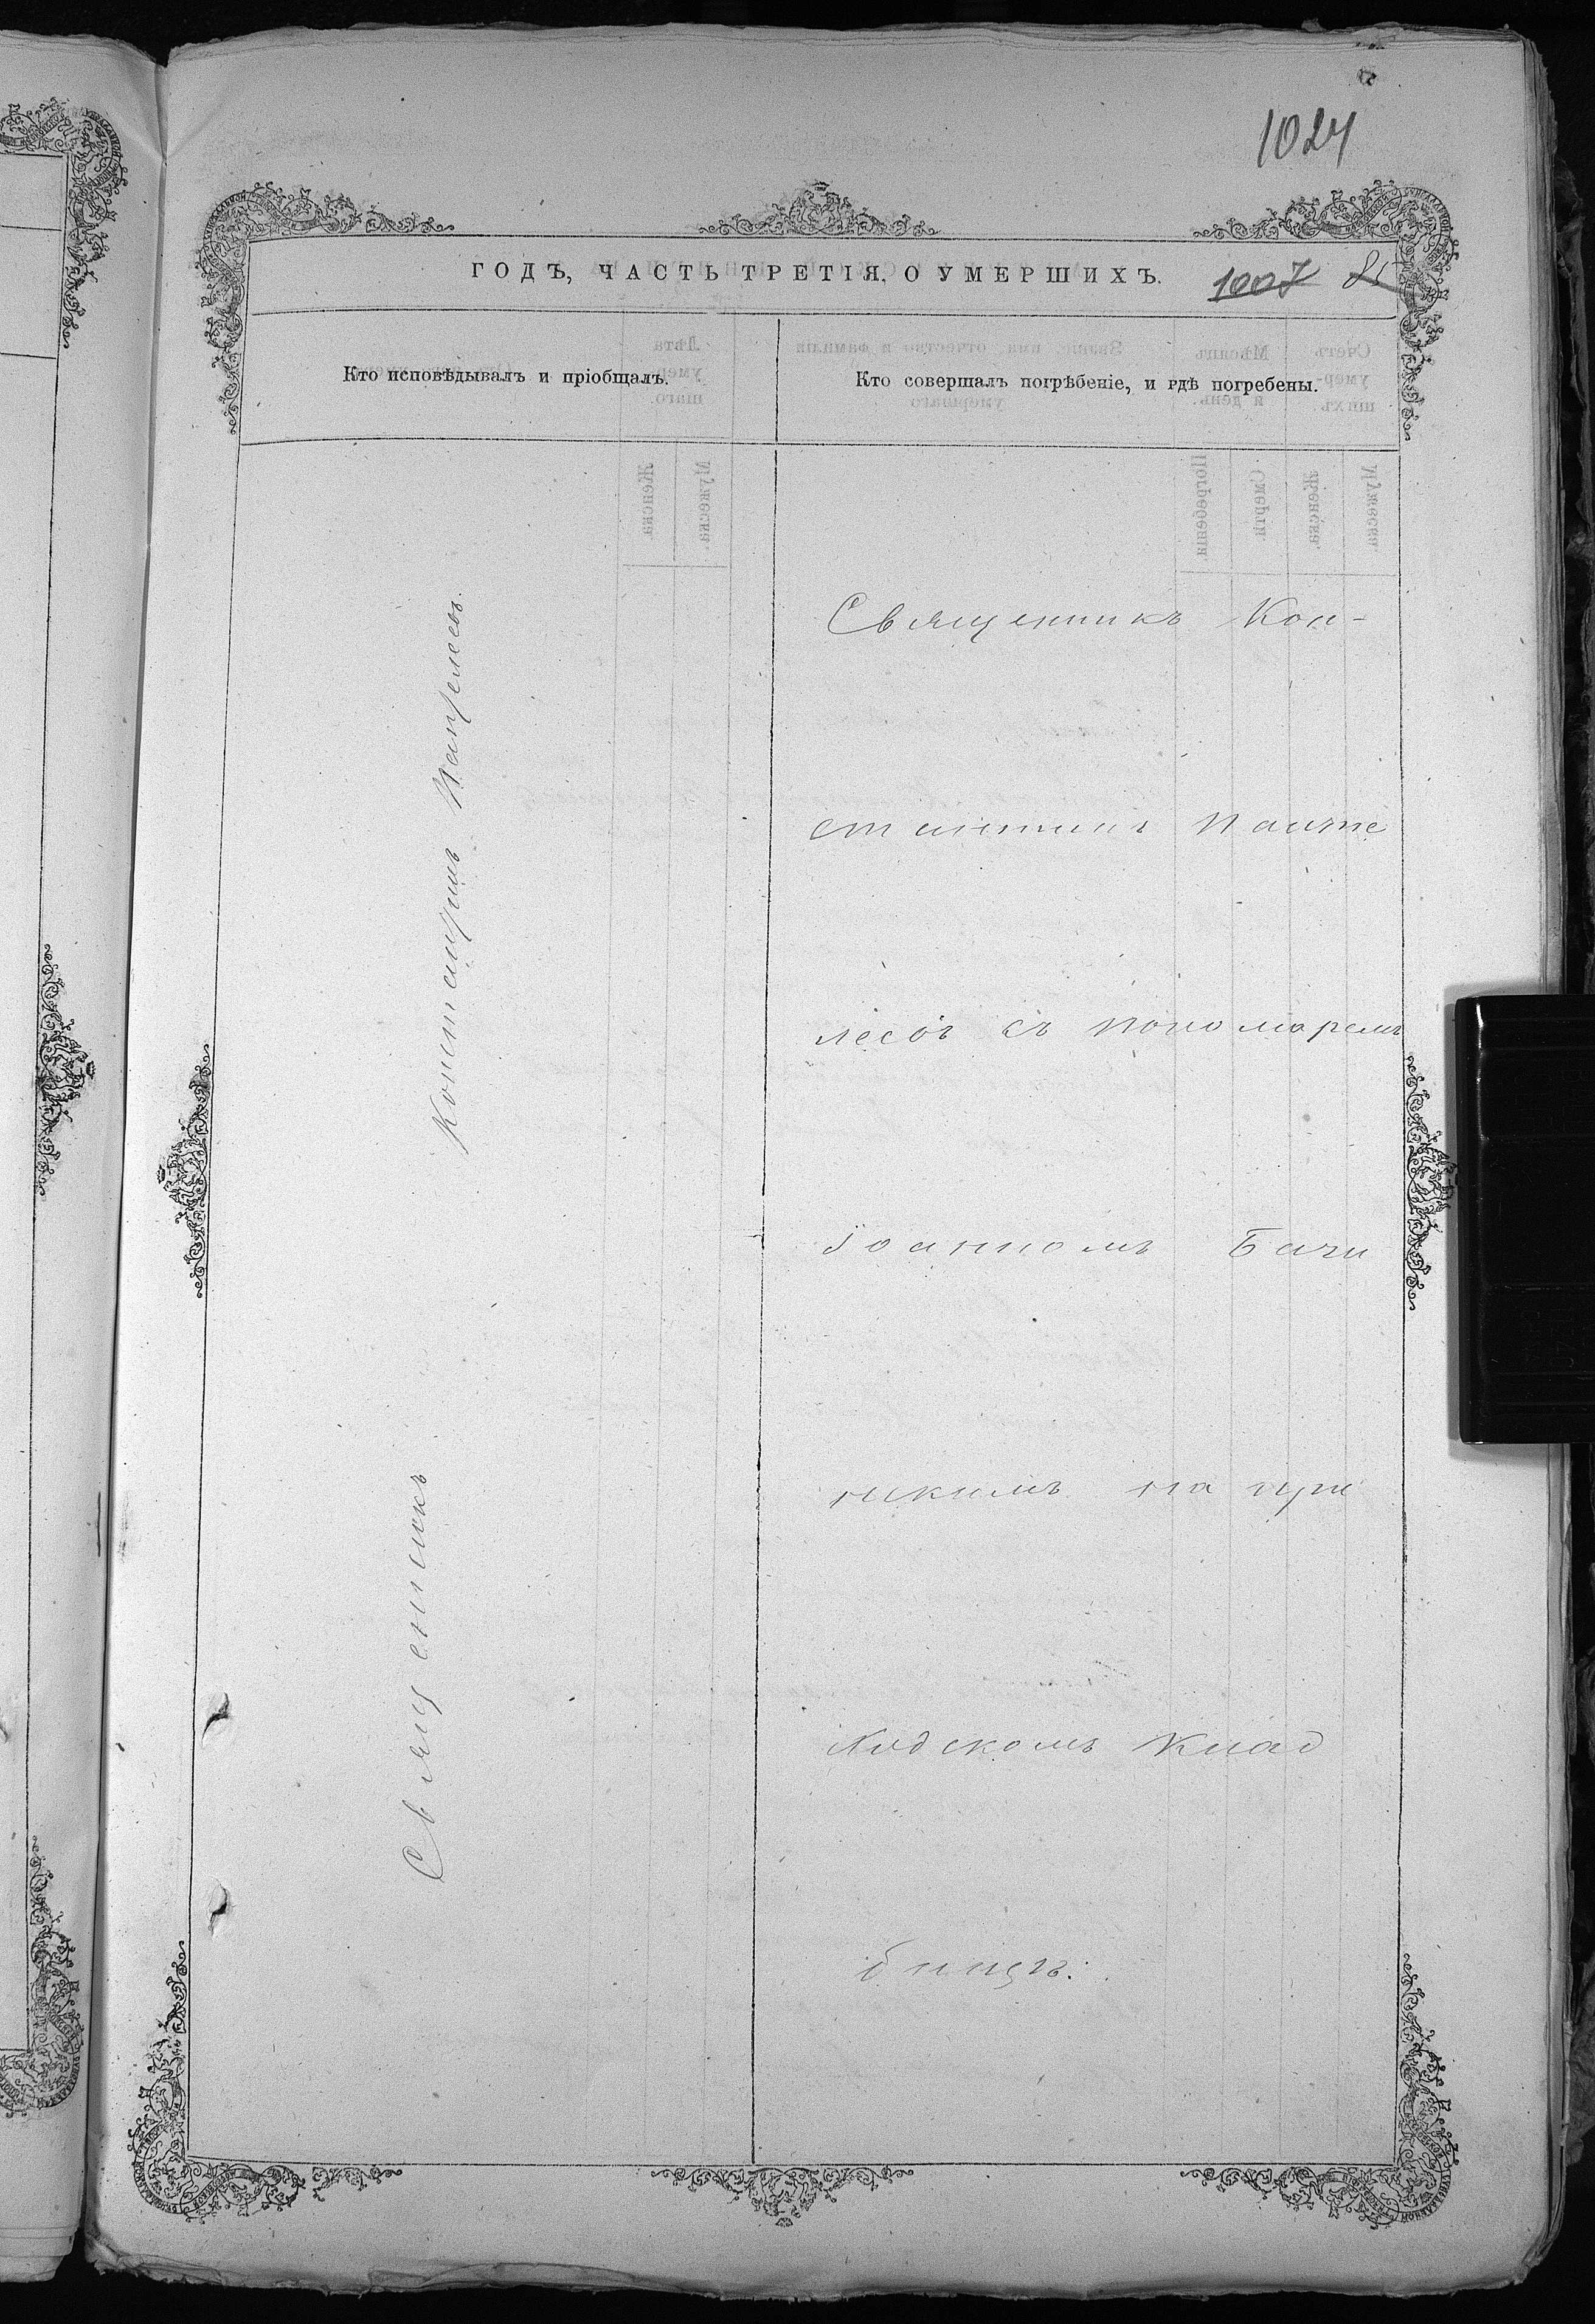 1024
ГОДЪ, ЧАСТЬ ТРЕТІЯ, О УМЕРШИХЪ.
1007 85
Кто исповѣдывалъ и пріобщалъ.
Кто совершалъ погрѣбеніе, и гдѣ погребены.
Священникъ Константинъ
Священникъ Кон-
стантинъ Панте
лесъ съ пономаремъ
Іоанномъ Бачи
на при
ходскомъ клад
бищѣ.